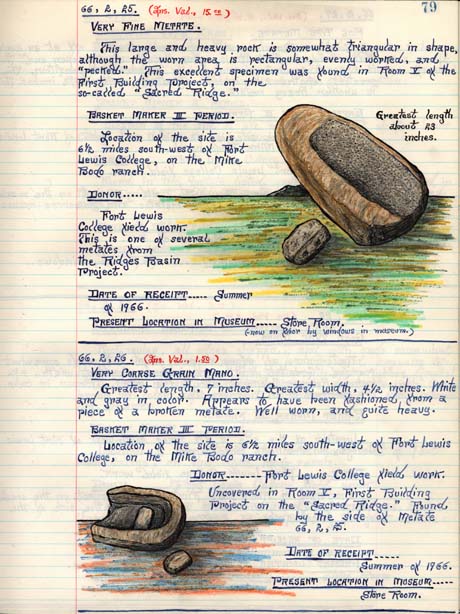 79
66, 2, 25. (Ins. Val., 15.00)
Very Fine Metate.
This large and heavy rock is somewhat triangular in shape,
although the worn area is rectangular, evenly worked, and
"pecked." This excellent specimen was found in Room V of the
First Building Project, on the
so-called "Sacred Ridge."
Basket Maker III Period.
Greatest length
about 23
inches.
Location of the site is
6½ miles south-west of Fort
Lewis College, on the Mike
Bodo ranch.
Donor.....
Fort Lewis
College field work.
This is one of several
metates from
the Ridges Basin
Project.
Date of Receipt..... Summer
of 1966.
Present Location in Museum..... Store Room.
(now on floor by windows in museum.)
66, 2, 26. (Ins. Val., 1.50)
Very Coarse Grain Mano.
Greatest length, 7 inches. Greatest width, 4½ inches. White
and gray in color. Appears to have been fashioned, from a
piece of a broken metate. Well worn, and quite heavy.
Basket Maker III Period.
Location of the site is 6½ miles south-west of Fort Lewis
College, on the Mike Bodo ranch.
Donor------- Fort Lewis College field work.
Uncovered in Room V, First Building
Project on the "Sacred Ridge." Found
by the side of Metate
66, 2, 25.
Date of Receipt-------
Summer of 1966.
Present Location in Museum-----
Store Room.